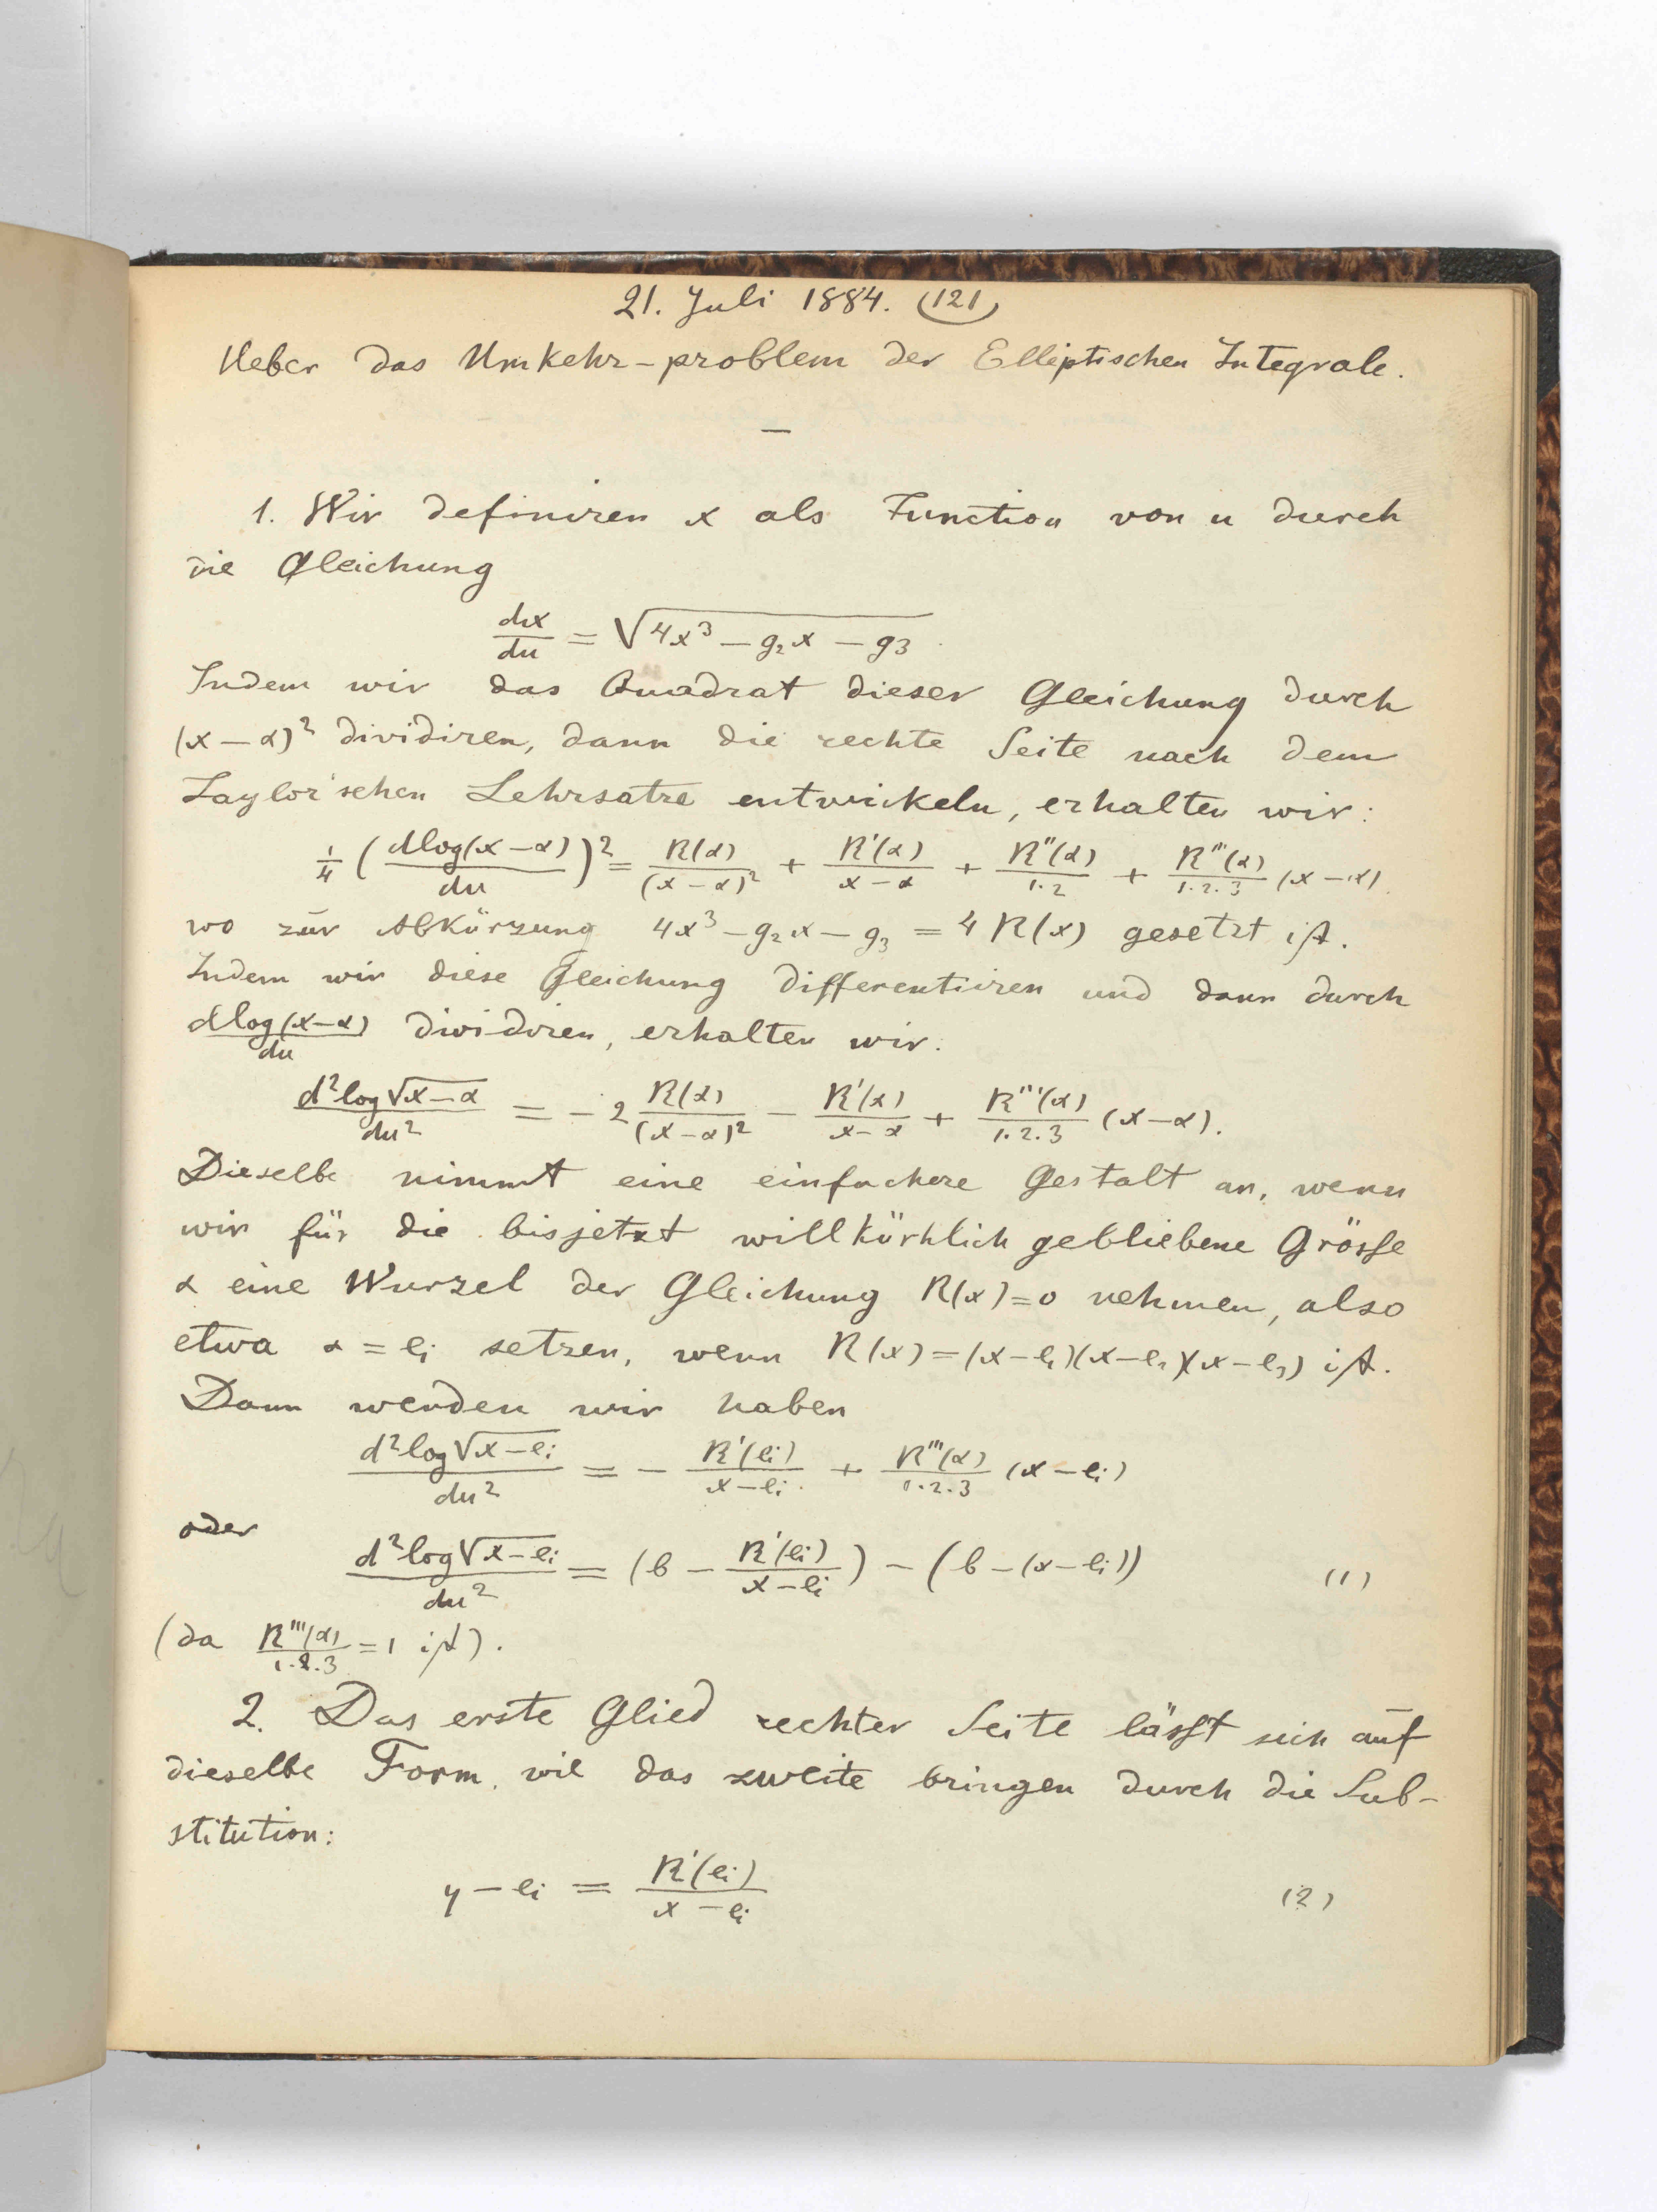 21. Juli 1884. (121)
Ueber das Umkehr-problem der Elliptischen Integrale.
—
1. Wir definiren x als Function von u durch
die Gleichung
dx/du = √(4x³ − g₂x − g₃)
Indem wir das Quadrat dieser Gleichung durch
(x − α)² dividiren, dann die rechte Seite nach dem
Taylor'schen Lehrsatze entwickeln, erhalten wir:
¼ (dlog(x − α)/du)² = R(α)/(x − α)² + R'(α)/(x − α) + R''(α)/1.2 + R'''(α)/1.2.3 (x − α).
wo zur Abkürzung 4x³ − g₂x − g₃ = 4 R(x) gesetzt ist.
Indem wir diese Gleichung differentiiren und dann durch
dlog(x−α)/du dividiren, erhalten wir:
d²log√(x−α)/du² = − 2 R(α)/(x − α)² − R'(α)/(x − α) + R'''(α)/1.2.3 (x − α).
Dieselbe nimmt eine einfachere Gestalt an, wenn
wir für die bisjetzt willkürhlich gebliebene Grösse
α eine Wurzel der Gleichung R(x) = 0 nehmen, also
etwa α = eᵢ setzen, wenn R(x) = (x − e₁)(x − e₂)(x − e₃) ist.
Dann werden wir haben
d²log√(x − eᵢ)/du² = − R'(eᵢ)/(x − eᵢ) + R'''(α)/1.2.3 (x − eᵢ)
oder
d²log√(x − eᵢ)/du² = (b − R'(eᵢ)/(x − eᵢ)) − (b − (x − eᵢ)) (1)
(da R'''(α)/1.2.3 = 1 ist).
2. Das erste Glied rechter Seite lässt sich auf
dieselbe Form wie das zweite bringen durch die Sub-
stitution:
y − eᵢ = R'(eᵢ)/(x − eᵢ) (2)